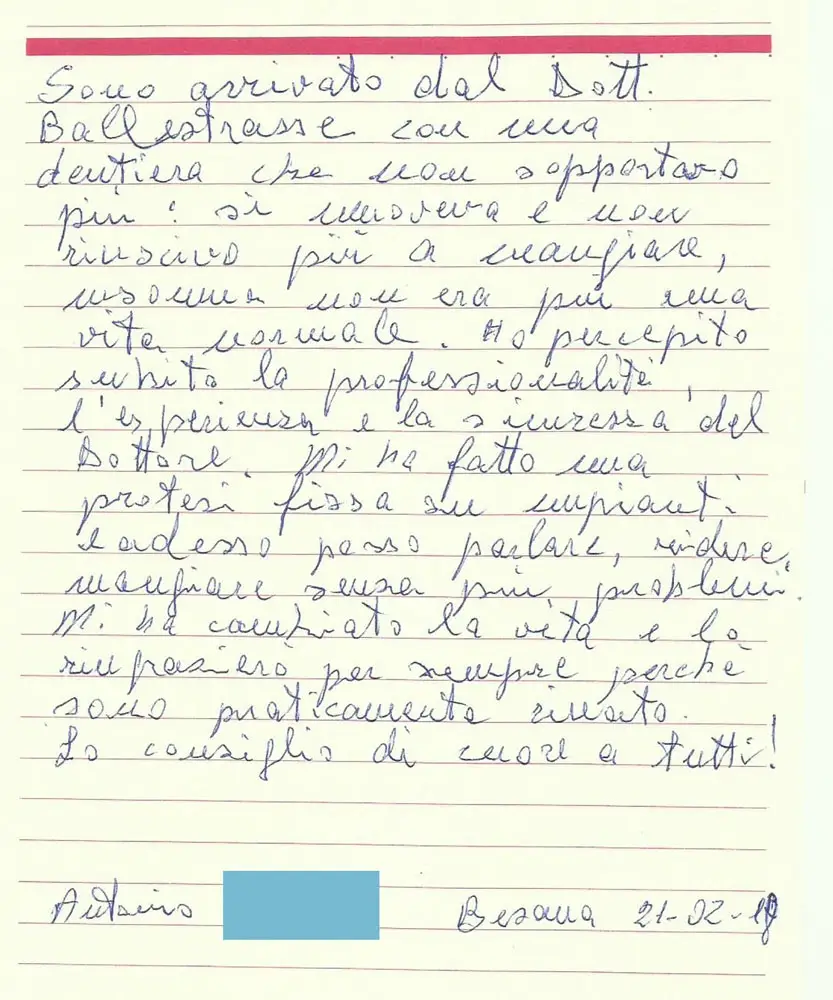 Sono arrivato dal Dott.
Ballestrasse con una
dentiera che non sopportavo
più: si muoveva e non
riuscivo più a mangiare,
insomma non era più una
vita normale. Ho percepito
subito la professionalità,
l'esperienza e la sicurezza del
Dottore. Mi ha fatto una
protesi fissa su impianti
e adesso posso parlare, ridere,
mangiare senza più problemi.
Mi ha cambiato la vita e lo
ringrazierò per sempre perchè
sono praticamente rinato.
Lo consiglio di cuore a tutti!
Antonino Besana 21-02-